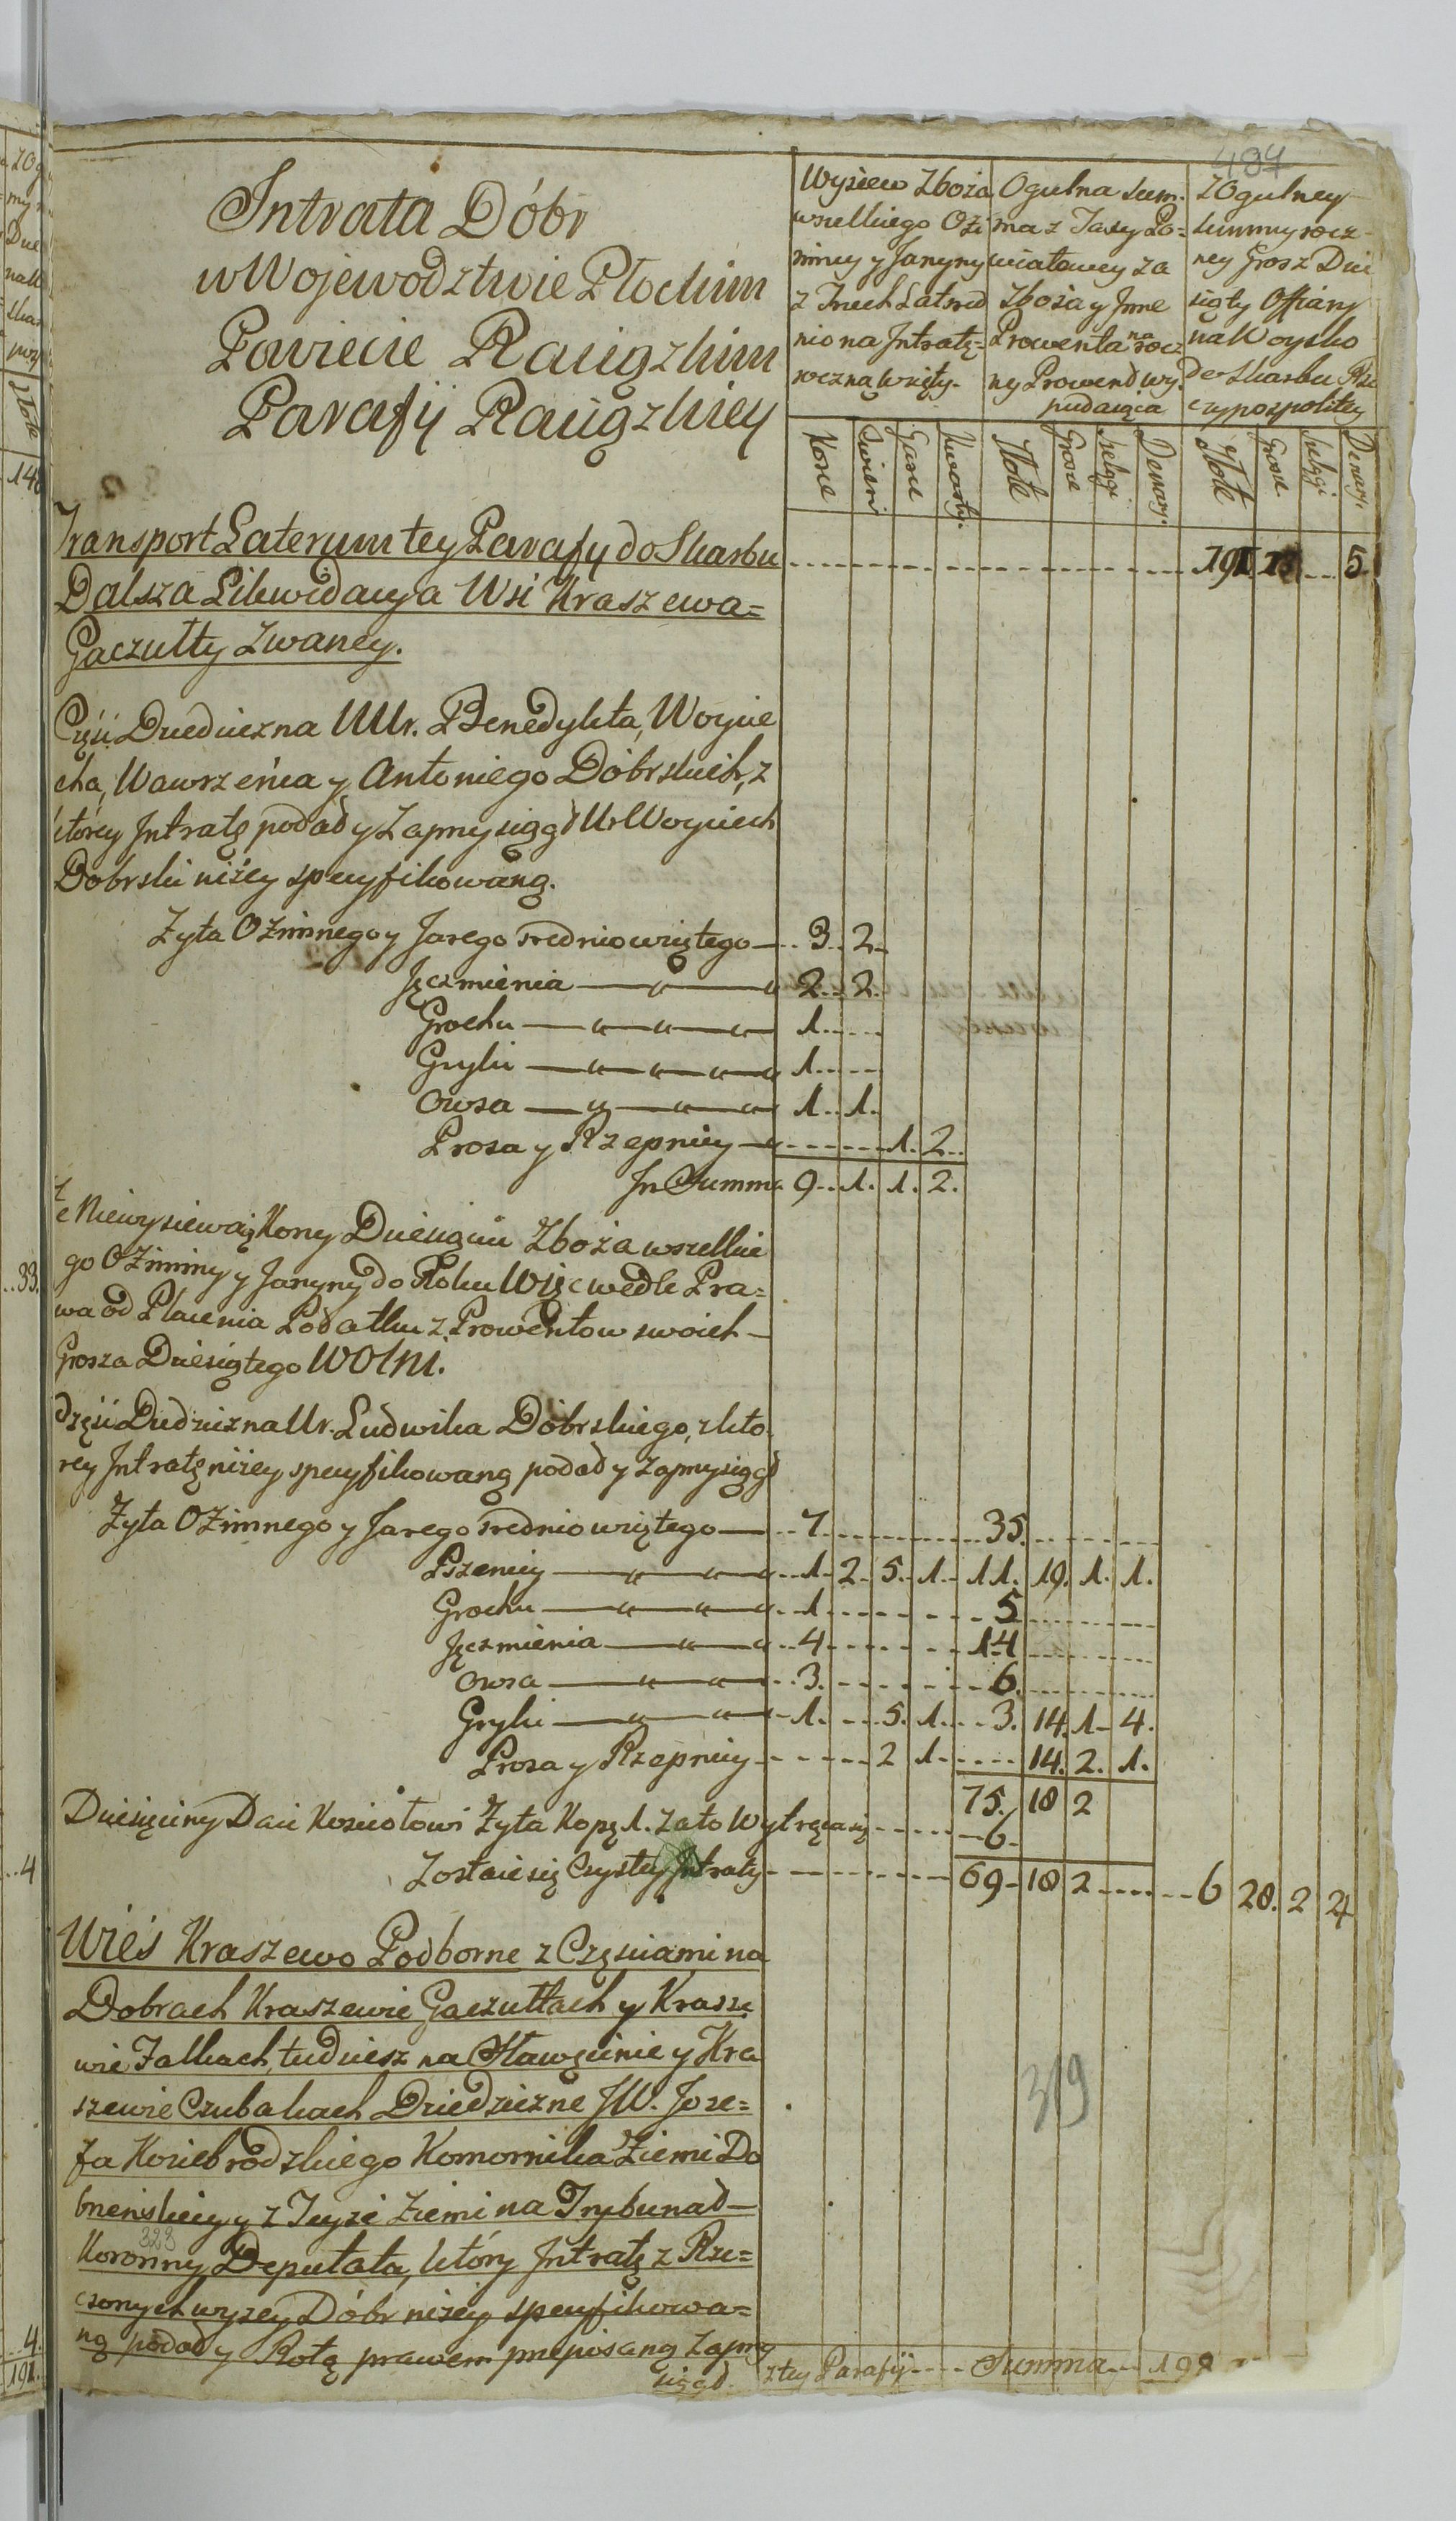 484
Intrata Dóbr
w Wojewodztwie Płockim
Powiecie Raciązkim
Parafÿi Raciązkiey
Wysiew Zboża
wszelkiego Ozi
miny y Jarzyny
z Trzech Lat sred
nio na Jntratę
roczną wzięty.
Ogulna Sum.
ma z Taxy Po=
wiatowey za
Zboża y Jnne
Prowenta na rocz
ny Prowend wy.
padaiąca
Z Ogulney
Summy rocz-
ney Grosz Dzie
siąty Offiary
na Woysko
do Skarbu Rze
czypospolitey
Korce
Cwierci
Garce
Kwarty.
Złote
Grosze
Szelągi
Denary.
Złote
Grosze
Szelągi
Denary.
Transport Laterum tey Parafÿ do Skarbu 191 5
Dalsza Likwidacya Wsi Kraszewa=
Gaczułty Zwaney.
Część Dziedziczna UUr. Benedykta, Woycie
cha, Wawrzeńca y Antoniego Dobrskich, z
ktorey Jntratę podał y Zaprzysiągł Ur Woyciech
Dobrski niżey specyfikowaną.
Zyta Ozimnego y Jarego srednio wziętego 3 2
Jęczmienia 2 2
Grochu 1
Gryki 1
Owsa 1 1
Prosa y Rzepnicy 1 2
Jn Summa 9 1 1 2
Że Niewysiewaią Korcy Dziesięciu Zboża wszelkie
go Oziminy y Jarzyny do Roku Więc wedle Pra=
wa od Płacenia Podatku z Prowentow swoich
Grosza Dziesiątego WOlni.
Część Dziedziczna Ur. Ludwika Dobrskiego, z kto.
rey Jntratę niżey specyfikowaną podał y zaprzysiągł
Zyta Ozimnego y Jarego srednio wziętego 7 35
Pszenicy 1 2 5 1 11 19 1 1
Grochu 1 5
Jęczmienia 4 14
Owsa 3 6
Gryki 1 5 1 3 14 1 4
Prosa y Rzepnicy 2 1 14 2 1
75 18 2
Dziesięciny Daie Kosciołowi Zyta Kopę 1. za to Wytrąca się 6
Zostaie się Czystey Jntraty 69 18 2 6 28 2 4
Wieś Kraszewo Podborne z Częsciami na
Dobrach Kraszewie Gaczułtach y Krasze
wie Falkach, tudziesz na Sławęcinie y Kra
szewie Czubakach Dziedziczne JW. Joze=
fa Koziebrodzkiego Komornika Ziemi Do
brzeńskiey y z Teyże Ziemi na Trybunał
Koronny Deputata, który Jntratę z Rze=
czonych wyzey Dóbr niżey specyfikowa=
ną podał y Rotą prawem przepisaną Zaprzy
siągł.
z tey Parafÿi Summa
319
323
33
4
4
191